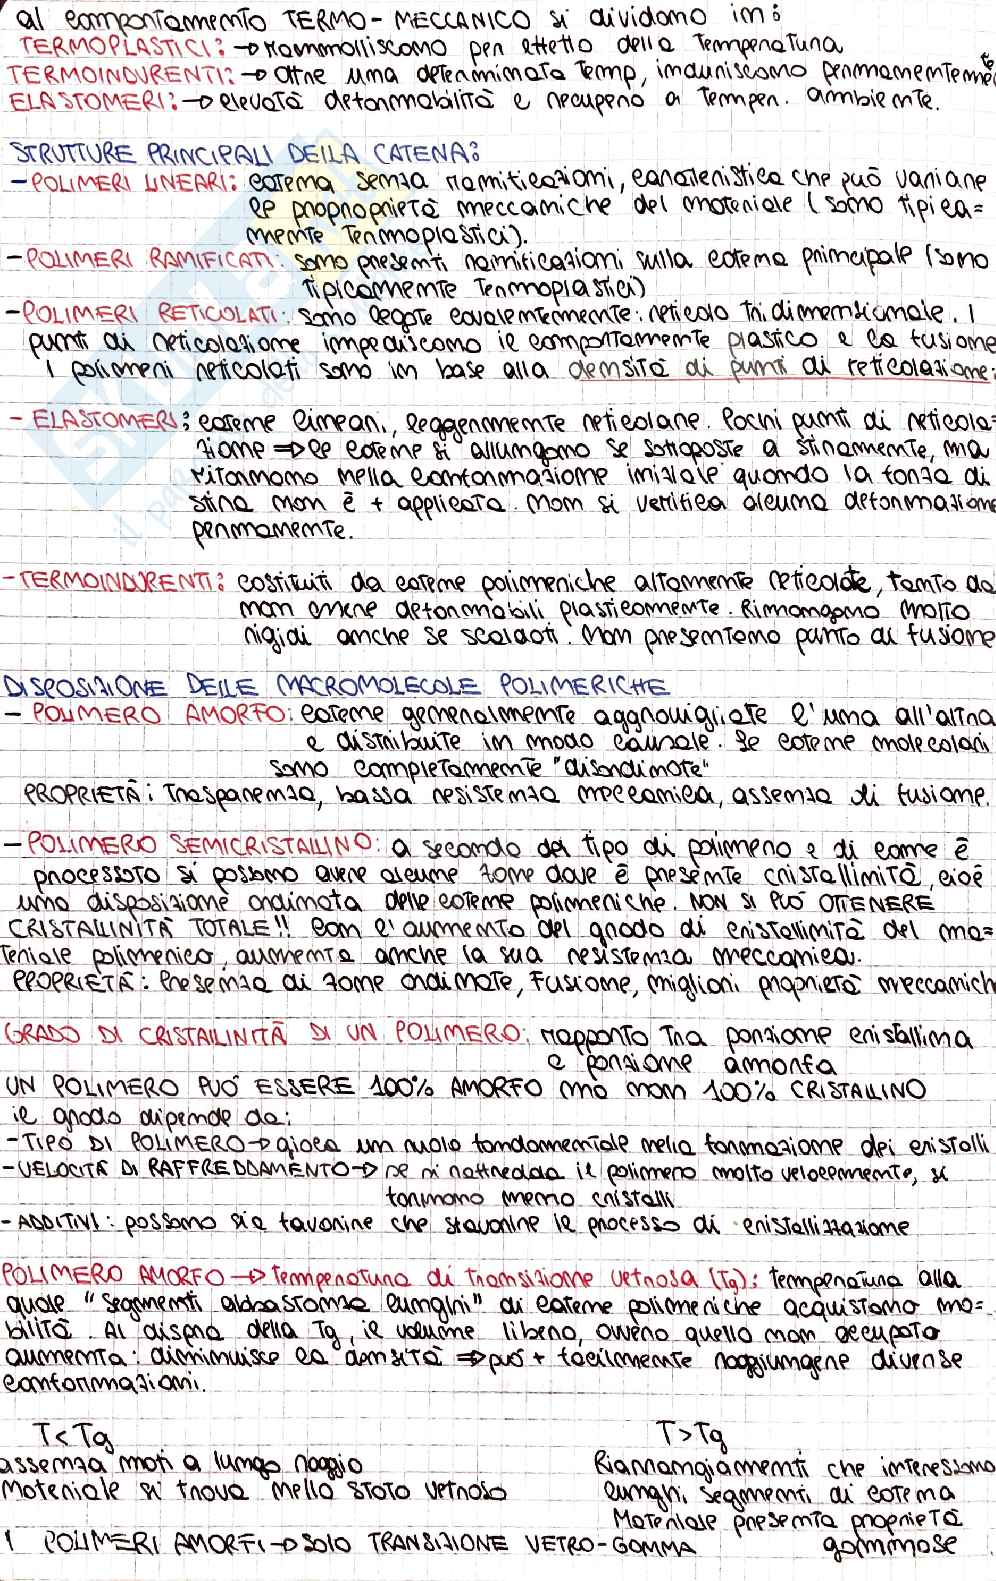 al comportamento TERMO-MECCANICO si dividono in:
TERMOPLASTICI: → rammolliscono per effetto della temperatura
TERMOINDURENTI: → oltre una determinata temp, induriscono permanentemente
ELASTOMERI: → elevata deformabilità e recupero a temper. ambiente.
STRUTTURE PRINCIPALI DELLA CATENA:
- POLIMERI LINEARI: catena senza ramificazioni, caratteristica che può variare
le proproprietà meccaniche del materiale (sono tipica=
mente termoplastici).
- POLIMERI RAMIFICATI: sono presenti ramificazioni sulla catena principale (sono
tipicamente termoplastici)
- POLIMERI RETICOLATI: sono legate covalentemente: reticolo tridimensionale. I
punti di reticolazione impediscono il comportamento plastico e la fusione
I polimeri reticolati sono in base alla densità di punti di reticolazione:
- ELASTOMERI: catene lineari, leggermente reticolare. Pochi punti di reticola=
zione ⇒ le catene si allungano se sottoposte a stiramento, ma
ritornano nella conformazione iniziale quando la forza di
stiro non è + applicata. Non si verifica alcuna deformazione
permanente.
- TERMOINDURENTI: costituiti da catene polimeriche altamente reticolate, tanto da
non essere deformabili plasticamente. Rimangono molto
rigidi anche se scaldati. Non presentano punto di fusione
DISPOSIZIONE DELLE MACROMOLECOLE POLIMERICHE
- POLIMERO AMORFO: catene generalmente aggrovigliate l'una all'altra
e distribuite in modo causale. Le catene molecolari
sono completamente "disordinate"
PROPRIETÀ: Trasparenza, bassa resistenza meccanica, assenza di fusione.
- POLIMERO SEMICRISTALLINO: a seconda del tipo di polimero e di come è
processato si possono avere alcune zone dove è presente cristallinità, cioè
una disposizione ordinata delle catene polimeriche. NON SI PUÒ OTTENERE
CRISTALLINITÀ TOTALE!! Con l'aumento del grado di cristallinità del ma=
teriale polimerico, aumenta anche la sua resistenza meccanica.
PROPRIETÀ: Presenza di zone ordinate, Fusione, migliori proprietà meccanich
GRADO DI CRISTALLINITÀ DI UN POLIMERO: rapporto tra porzione cristallina
e porzione amorfa
UN POLIMERO PUÒ ESSERE 100% AMORFO ma non 100% CRISTALLINO
il grado dipende da:
- TIPO DI POLIMERO → gioca un ruolo fondamentale nella formazione dei cristalli
- VELOCITÀ DI RAFFREDDAMENTO → se si raffredda il polimero molto velocemente, si
formano meno cristalli
- ADDITIVI: possono sia favorire che sfavorire il processo di cristallizzazione
POLIMERO AMORFO → Temperatura di transizione vetrosa (Tg): temperatura alla
quale "segmenti abbastanza lunghi" di catene polimeriche acquistano mo=
bilità. Al dispra della Tg, il volume libero, ovvero quello non occupato
aumenta: diminuisce la densità ⇒ può + facilmente raggiungere diverse
conformazioni.
T<Tg
T>Tg
assenza moti a lungo raggio
Riarrangiamenti che interessano
Materiale si trova nello stato vetroso
lunghi segmenti di catena
Materiale presenta proprietà
gommose
I POLIMERI AMORFI → SOLO TRANSIZIONE VETRO-GOMMA